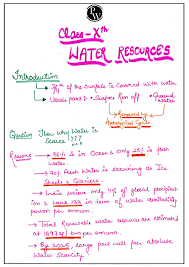 PW
Class-Xth
WATER RESOURCES
Introduction
3/4th of the surface is Covered with Water
Usable part → Surface Run off Ground Water
Renewed by → Hydrological Cycle
Question Then Why Water is Scarce ???
Reasons → 96% is in Ocean & only 2.5% is fresh Water.
70% of fresh Water is occurring as Ice Sheets & Glaciers.
India receives only 4% of global precipitation & Rank 133 in term of water availability, person per annum.
Total Renewable Water resources are estimated at 1897 per annum.
By 2025, large part will face absolute Water Scarcity.